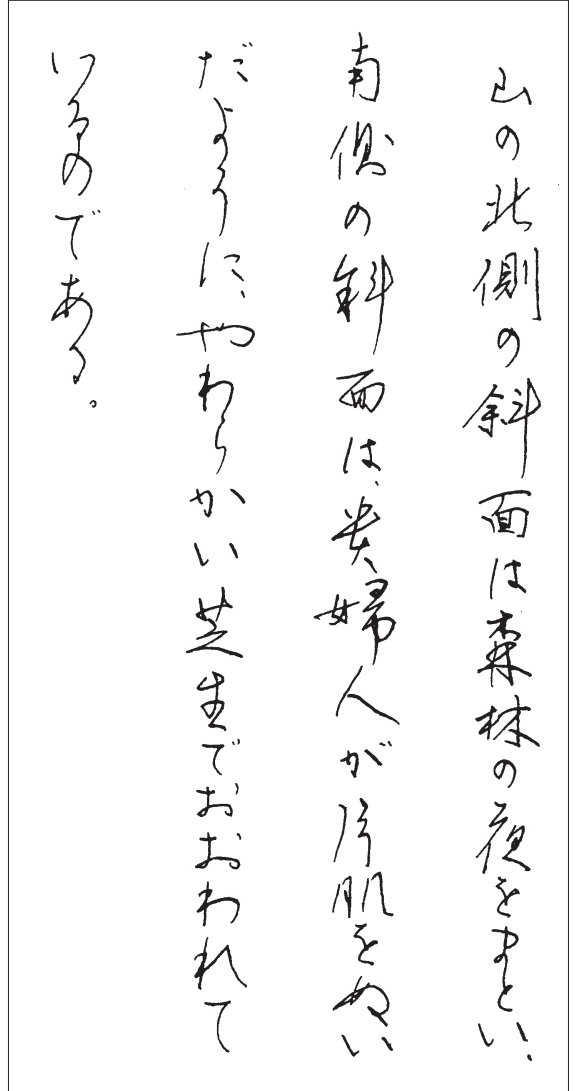 山の北側の斜面は森林の夜をまとい、
南側の斜面は、貴婦人が片肌をぬい
だように、やわらかい芝生でおおわれて
いるのである。